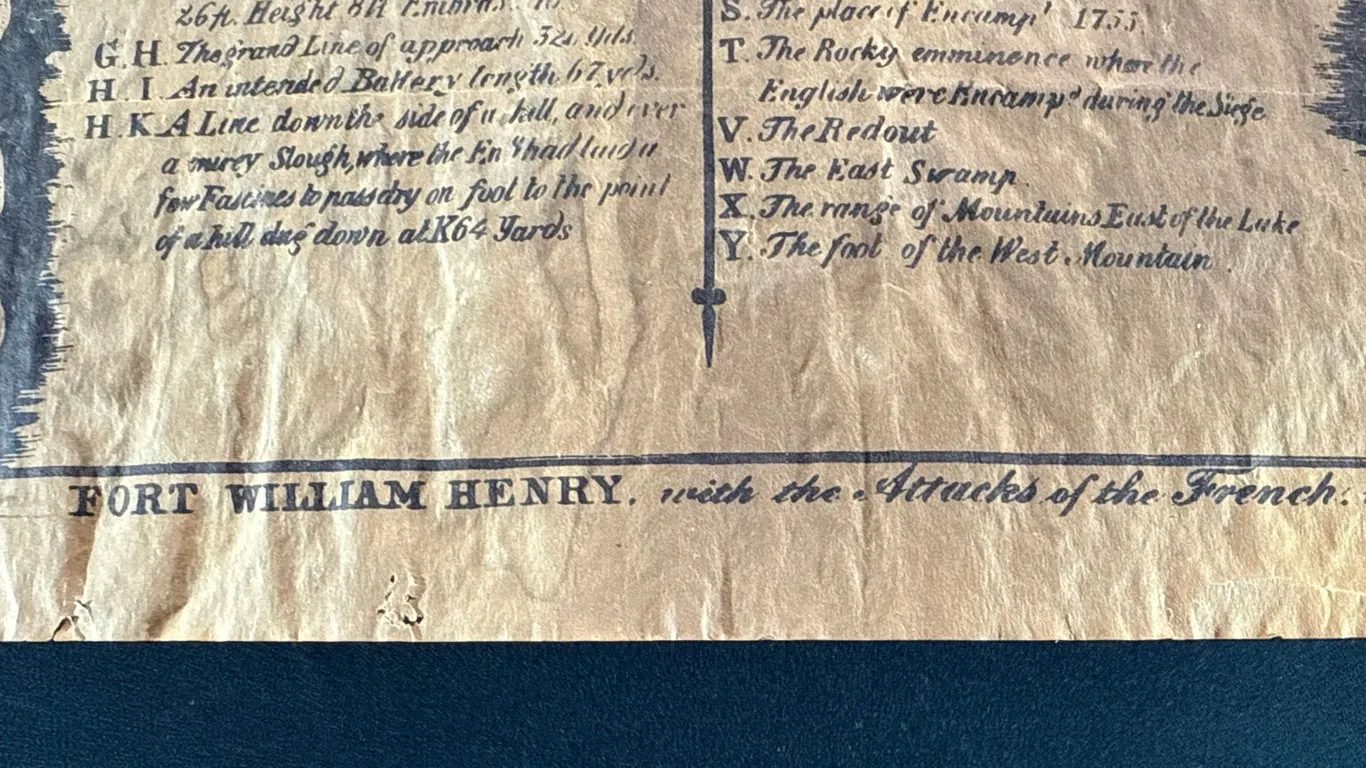 26ft. Height 8ft
G. H. The grand Line of approach Yds.
H. I. An intended Battery length 67 yds.
H. K. A Line down the side of a hill, and over
a mirey Slough, where the En.y had laid a
few Fascines to pass dry on foot to the point
of a hill dug down at K 64 Yards
S. The place of Encamp.t 1755.
T. The Rocky emminence where the
English were Encamp.d during the Siege
V. The Redout
W. The East Swamp.
X. The range of Mountains East of the Lake
Y. The foot of the West Mountain.
FORT WILLIAM HENRY, with the Attacks of the French.